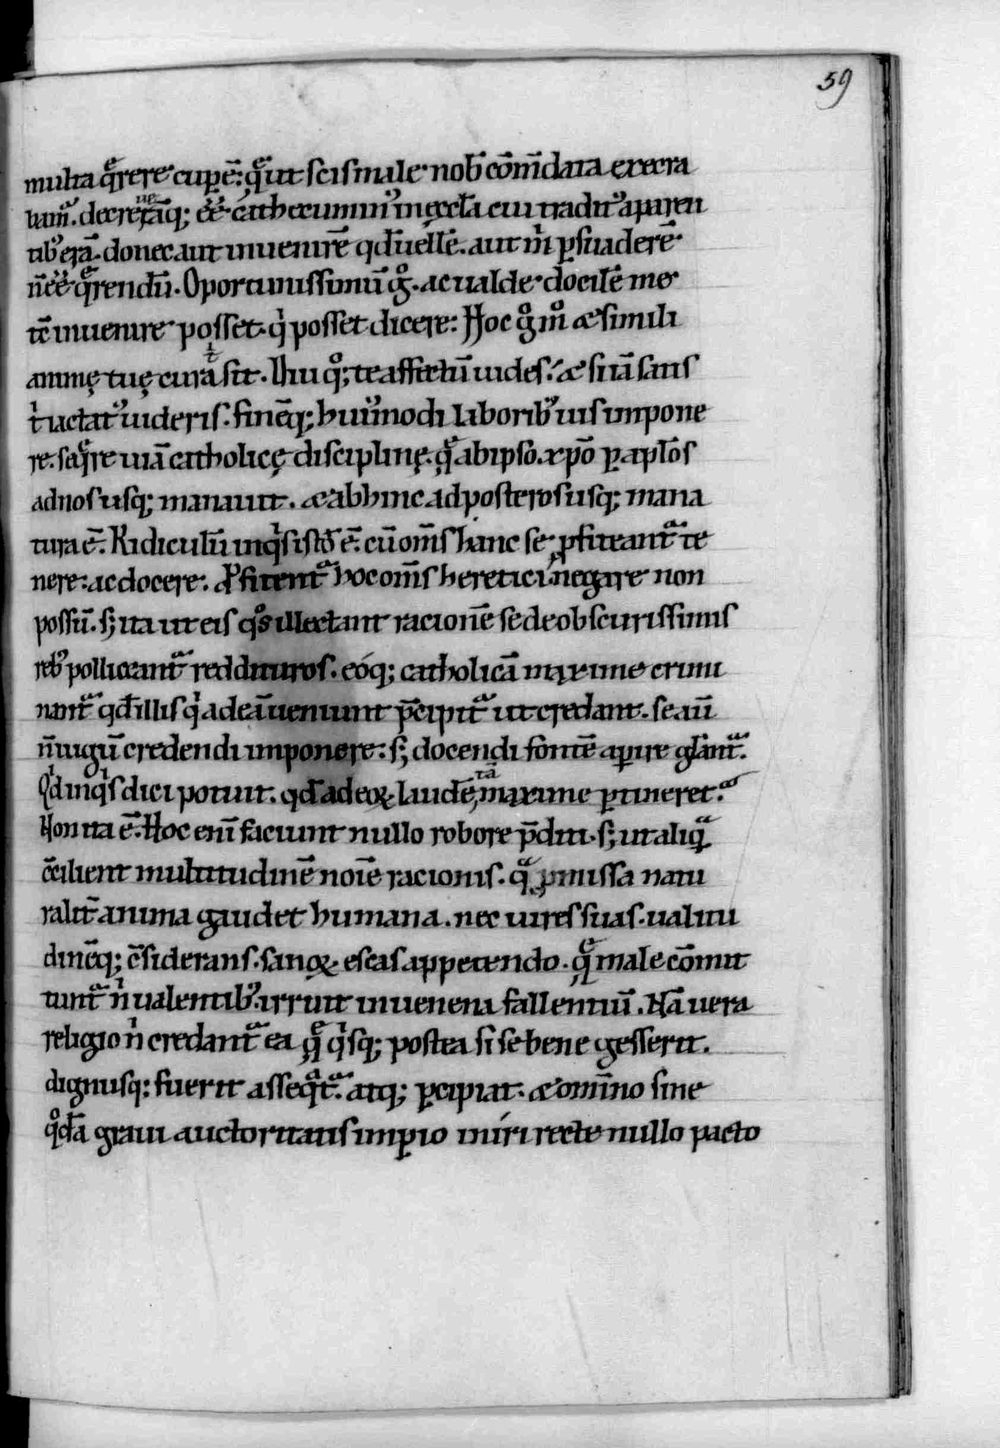 59
multa q̄rere cuperē. q̄ ut sci simule nob̄ cōm̄data execra
bam᷒. decreuerāq; ēē cathecuminꝰ in ęccl̄a cui traditꝰ a paren
tibꝰ erā. donec aut inuenirē qd̄ uellē. aut m̄ ꝑsuaderē
n̄ ēē q̄rendū. Oportunissimū gͦ. ac ualde docilē me
tē inuenire posset. qi posset dicere: Hoc gͦ mͦ æ simili
animę tuę cura sit. Diu qͦ; te affectū uides. æ si iā satis
t iactatꝰ uideris. finēq; huiꝰmodi laboribꝰ uis impone
re. seqͥre uiā catholicę disciplinę. q̄ ab ipso xp̄o ꝑ apl̄os
ad nos usq; manauit. æ ab hinc ad posteros usq; mana
tura ē. Ridiculū inqͥs istđ ē. cū om̄s hanc se ꝓfiteant᷒ te
nere: ac docere. Ꝓfitent᷒ hoc om̄s heretici. negare non
possū. s; ita ut eis qͦs illectant racionē se de obscurissimis
rebꝰ polliceant᷒ reddituros. eoq; catholicā maxime crimi
nant᷒ qd̄ illis qi ad eā ueniunt p̄cipit᷒ ut credant. se aū
n̄ iugū credendi imponere: s; docendi fontē aꝑire glīant᷒.
Qͥd inqͥs dici potuit. qd̄ ad eoꝝ laudē tā maxime ꝑtineret.
Non ita ē. Hoc enī faciunt nullo robore p̄diti. s; ut aliqͣ
c̄cilient multitudinē noīe racionis. qͣ ꝓmissa natu
ralit̄ anima gaudet humana. nec uires suas. ualitu
dinēq; c̄siderans. sanoꝝ escas appetendo. q̄ male cōmit
tunt᷒ n̄ ualentibꝰ. irruit in uenena fallentiū. Nā uera
religio n̄ credant᷒ ea q̄ qͥsq; postea si se bene gesserit.
dignusq: fuerit asseqͣt᷒. atq; ꝑcipiat. æ omīno sine
qͦdā graui auctoritatis imꝑio iniri recte nullo pacto